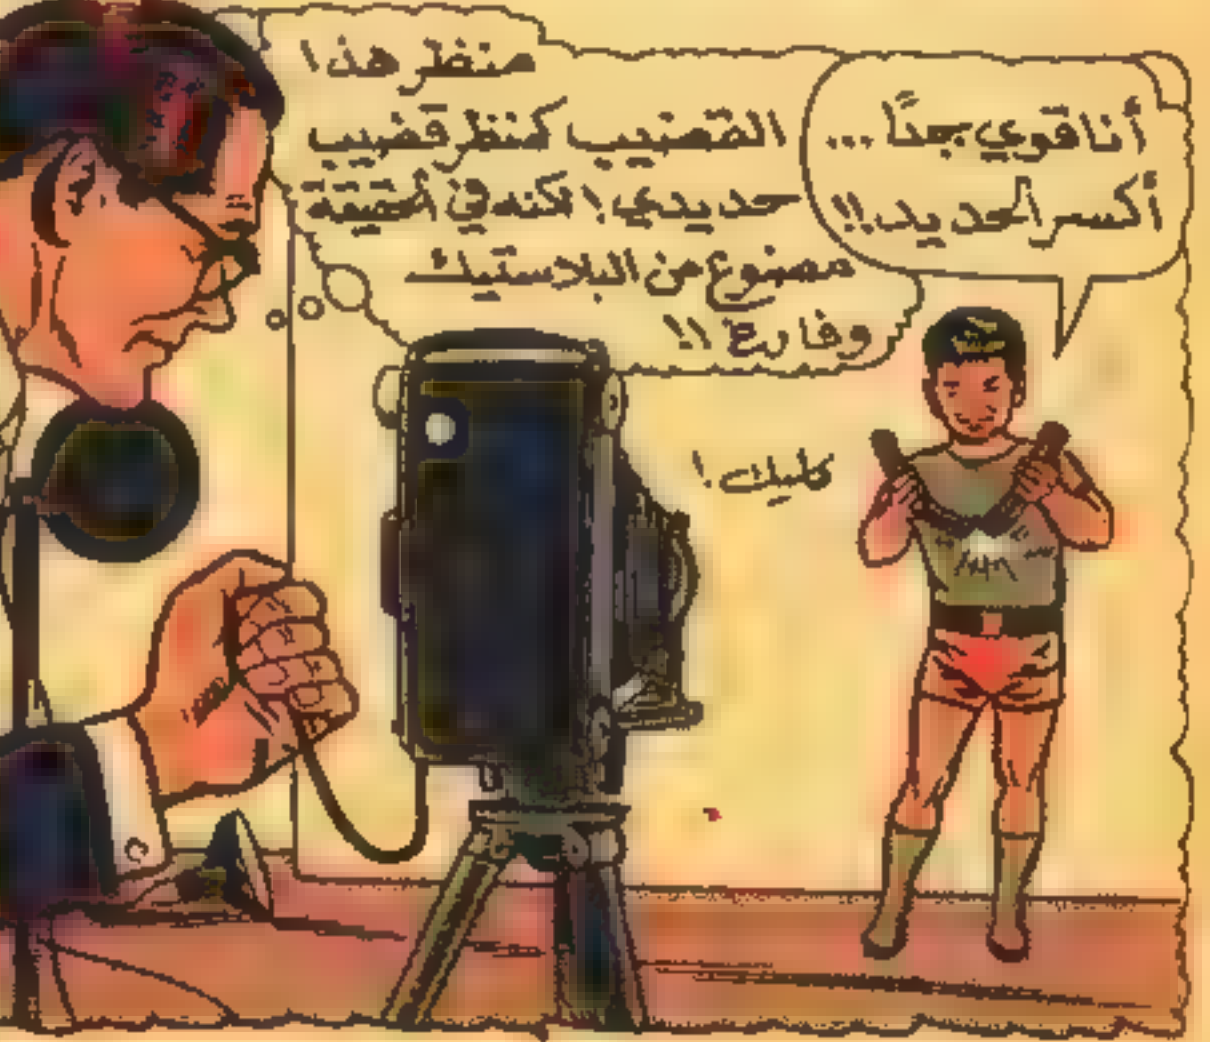 أنا قوي جدًا...
أكسر الحديد!!
منظر هذا
القضيب كمنظر قضيب
حديدي! لكنه في الحقيقة
مصنوع من البلاستيك
وفارغ!!
كليك!